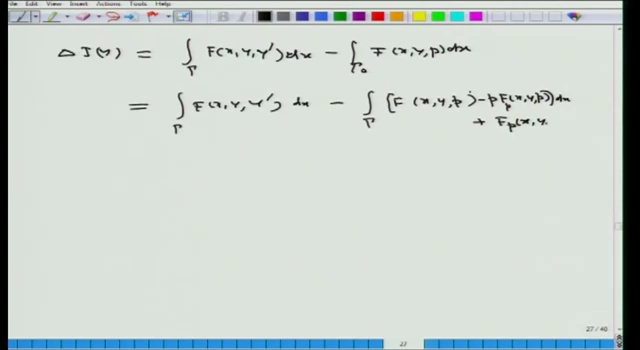 Edit View Insert Actions Tools Help
Δ J(Y) = ∫_Γ F(x, Y, Y') dx − ∫_Γ₀ F(x, Y, p) dx
= ∫_Γ F(x, Y, Y') dx − ∫_Γ [F(x, Y, p) − p F_p(x, Y, p)] dx
+ F_p(x, Y.
27 / 40
27